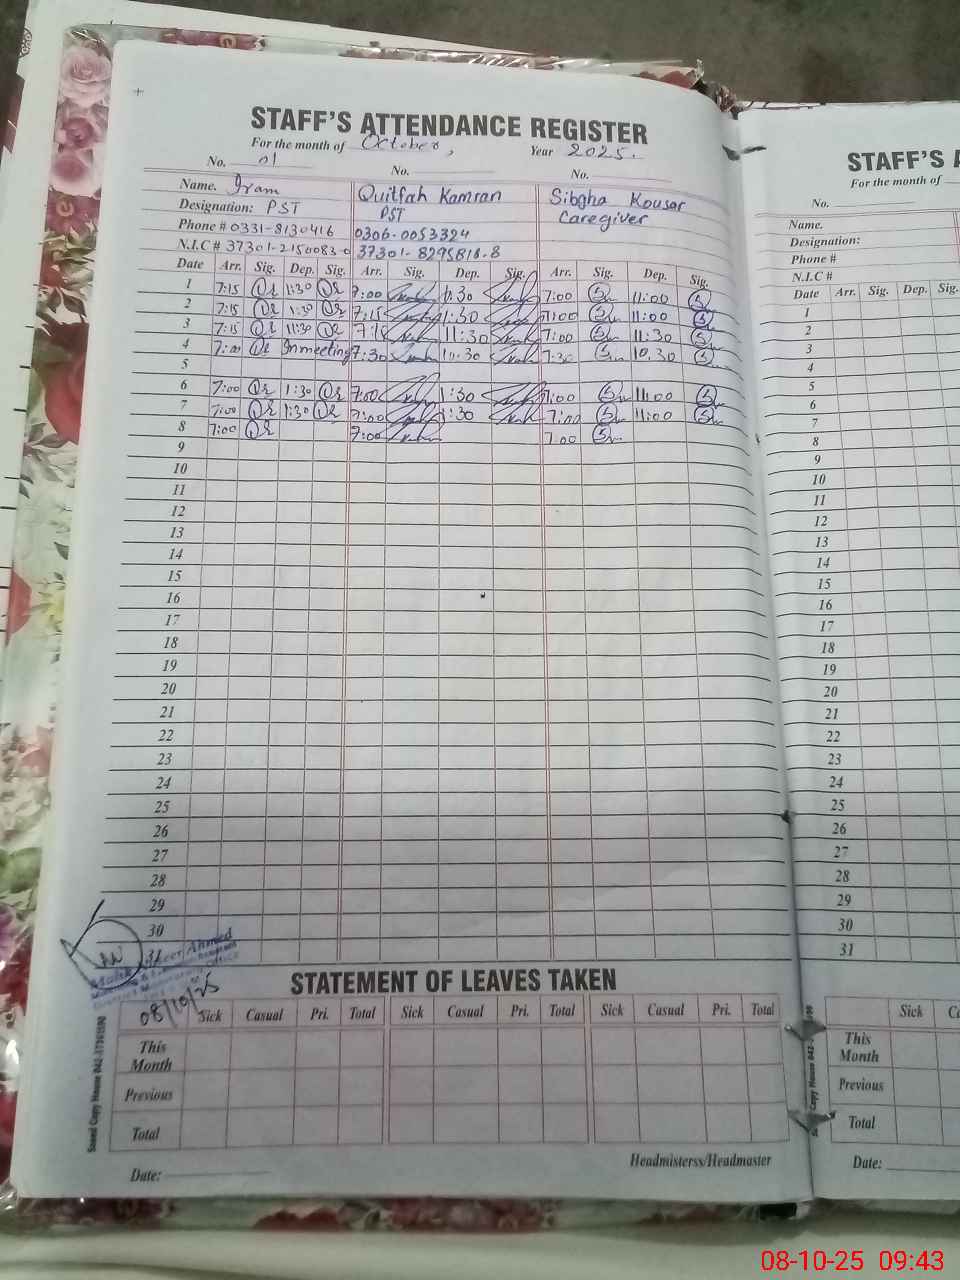 STAFF'S ATTENDANCE REGISTER
For the month of October, Year 2025.
No. 01 No. No.
Name. Iram Quitfah Kamran Sibgha Kousar
Designation: PST PST Caregiver
Phone # 0331-8130416 0306-0053324
N.I.C # 37301-2150083-0 37301-8295818-8
Date Arr. Sig. Dep. Sig. Arr. Sig. Dep. Sig. Arr. Sig. Dep. Sig.
1 7:15 1:30 7:00 1:30 7:00 11:00
2 7:15 1:30 7:15 1:30 7:00 11:00
3 7:15 11:30 7:15 11:30 7:00 11:30
4 7:00 In meeting 7:30 10:30 7:30 10.30
5
6 7:00 1:30 7:00 1:30 7:00 11:00
7 7:00 1:30 7:00 1:30 7:00 11:00
8 7:00 7:00 7:00
9
10
11
12
13
14
15
16
17
18
19
20
21
22
23
24
25
26
27
28
29
30
31
Ahmed
Office
08/10/25
STATEMENT OF LEAVES TAKEN
Sick Casual Pri. Total Sick Casual Pri. Total Sick Casual Pri. Total
This Month
Previous
Total
Date: Headmisterss/Headmaster
Saeed Copy House
STAFF'S A
For the month of
No.
Name.
Designation:
Phone #
N.I.C #
Date Arr. Sig. Dep. Sig.
1
2
3
4
5
6
7
8
9
10
11
12
13
14
15
16
17
18
19
20
21
22
23
24
25
26
27
28
29
30
31
Sick
This Month
Previous
Total
Date:
08-10-25 09:43